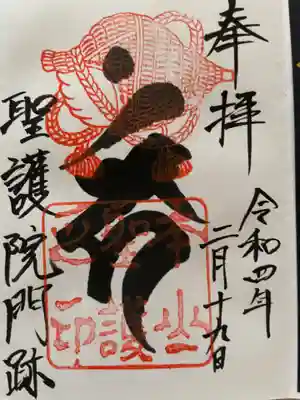 奉拝
令和四年
二月十九日
聖護院門跡